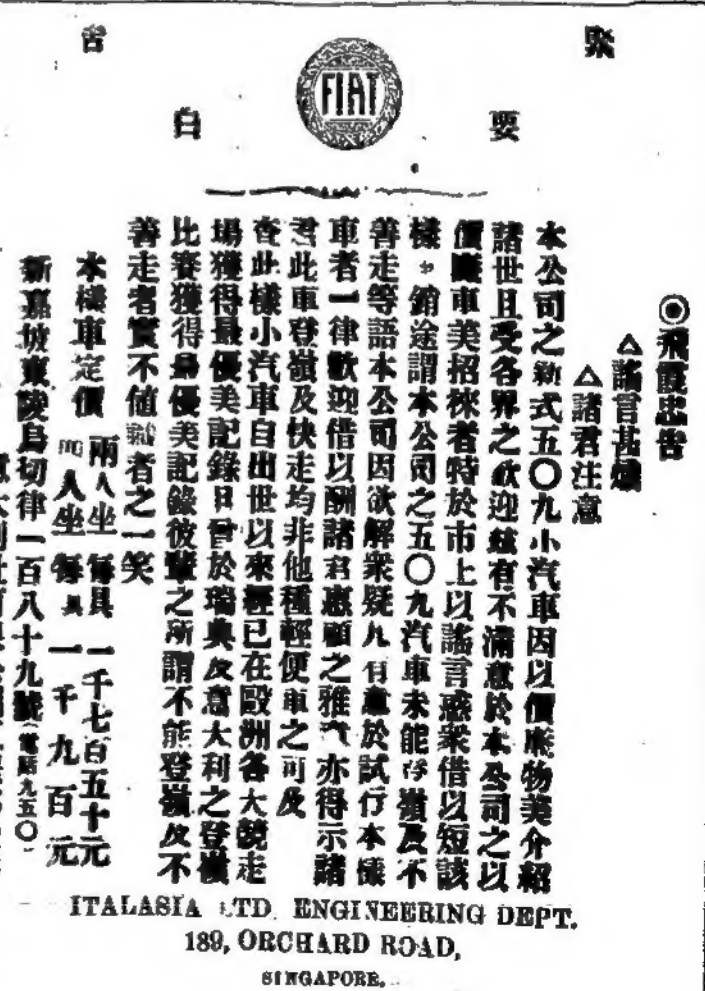 緊要告白
FIAT
◉飛霞忠告
△謠言甚熾
△諸君注意
本公司之新式五〇九小汽車因以價廉物美介紹
諸世且受各界之歡迎玆有不滿意於本公司之以
價廉車美招徠者特於市上以謠言惑衆借以短該
樣銷途謂本公司之五〇九汽車未能登嶺及不
善走等語本公司因欲解衆疑凡有意於試行本樣
車者一律歡迎借以酬諸君惠顧之雅亦得示諸
君此車登嶺及快走均非他種輕便車之可及
查此樣小汽車自出世以來經已在歐洲各大競走
場獲得最優美記錄且曾於瑞典及意大利之登嶺
比賽獲得最優美記錄彼輩之所謂不能登嶺及不
善走者實不値識者之一笑
本樣車定價 兩人坐 每具 一千七百五十元
四人坐 每具 一千九百元
新嘉坡東陵烏切律一百八十九號(電話九五〇
ITALASIA LTD. ENGINEERING DEPT.
189, ORCHARD ROAD,
SINGAPORE.